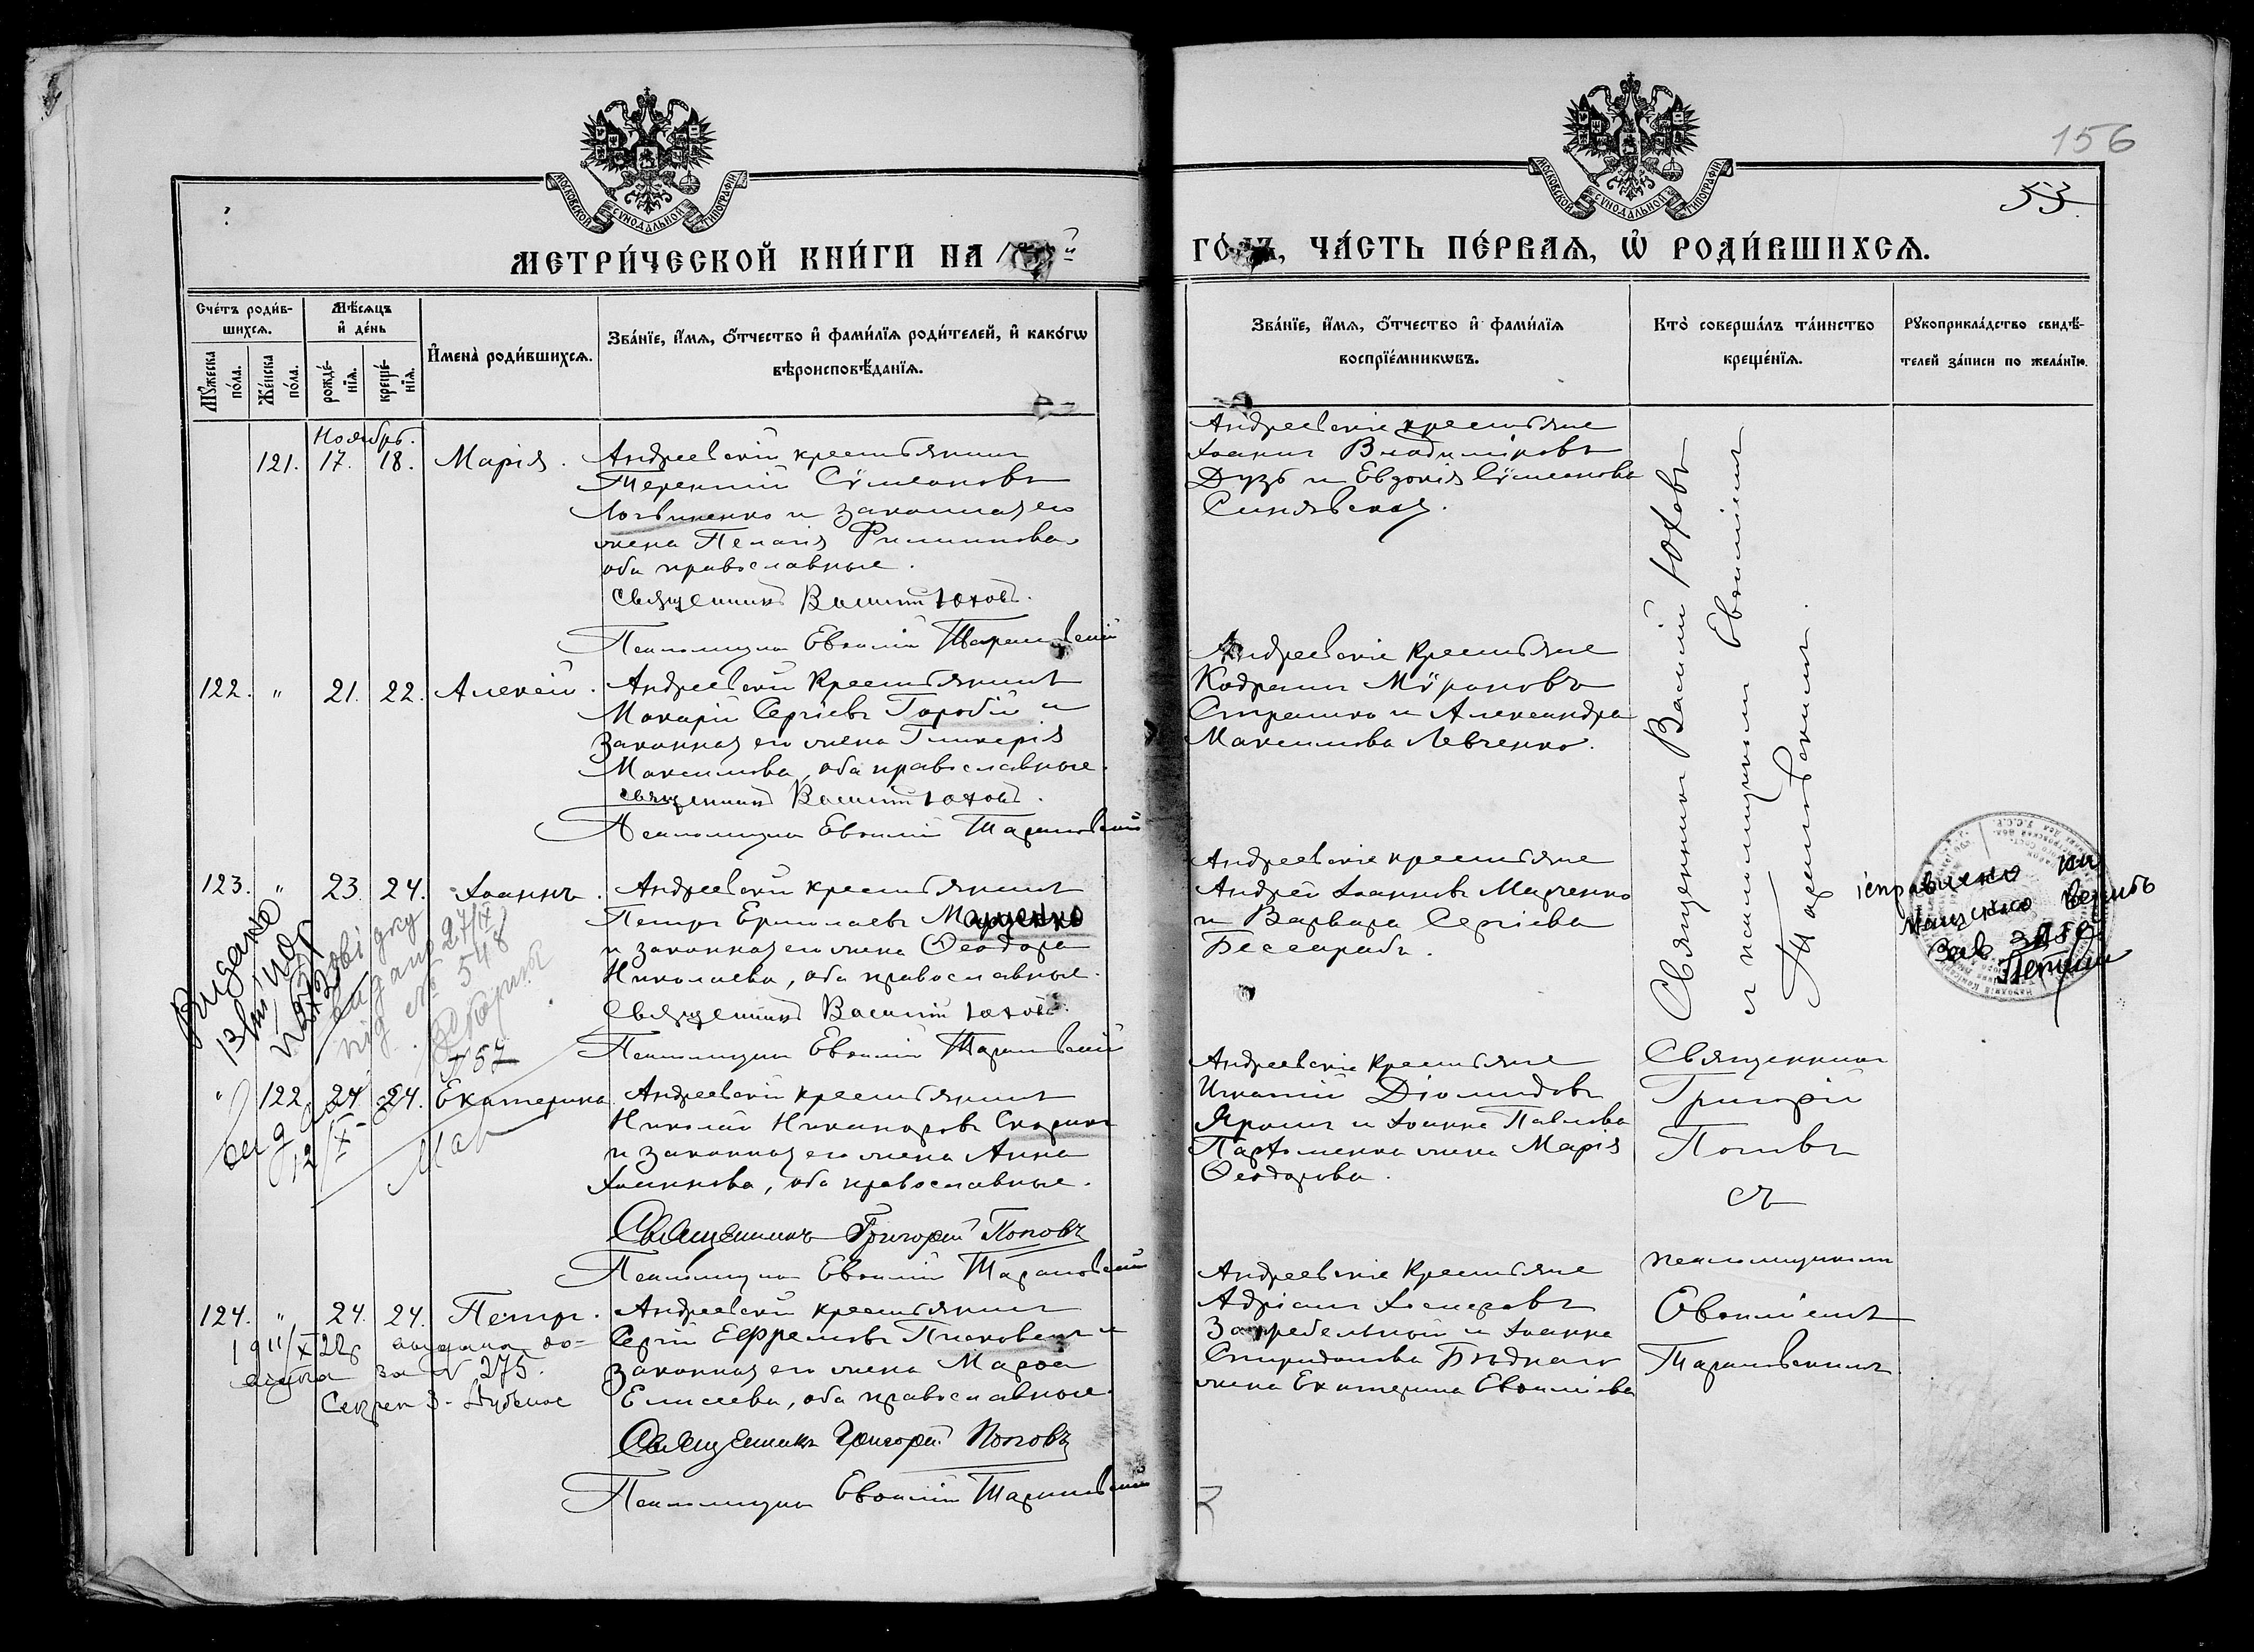 156
53.
МОСКОВСКОЙ СѴНОДАЛЬНОЙ ТИПОГРАФІИ
МОСКОВСКОЙ СѴНОДАЛЬНОЙ ТИПОГРАФІИ
МЕТРИ́ЧЕСКОЙ КНИ́ГИ НА
ГО́ДЪ, ЧА́СТЬ ПЕ́РВАѦ, Ѽ РОДИ́ВШИХСѦ.
Сче́тъ роди́в-
шихсѧ.
Мꙋжеска по́ла.
Же́нска по́ла.
Мѣ́сѧцъ
и҆ де́нь
рожде́-
нїѧ.
креще́-
нїѧ.
И҆мена̀ роди́вшихсѧ.
Зва́нїе, и҆́мѧ, ѻ҆́тчество и҆ фами́лїѧ роди́телей, и҆ како́гѡ
вѣроисповѣ́данїѧ.
Зва́нїе, и҆́мѧ, ѻ҆́тчество и҆ фами́лїѧ
воспрїе́мникѡвъ.
Кто̀ соверша́лъ та́инство
креще́нїѧ.
Рꙋкоприкла́дство свидѣ́-
телей за́писи по жела́нїю.
Ноябрь.
121. 17. 18. Марія.
Андреевскій крестьянинъ
Терентій Сѵмеоновъ
Логвиненко и законная его
жена Пелагія Филиппова
оба православные.
Священникъ Василій Юховъ.
Псаломщикъ Евѳимій Тарановскій
Андреевскіе крестьяне
Іоаннъ Владиміровъ
Дузь и Евдокія Сѵмеонова
Синявская.
Священникъ Василій Юховъ
съ псаломщикомъ Евѳиміемъ
Тарановскимъ.
122. " 21. 22. Алексій.
Андреевскій крестьянинъ
Макарій Сергіевъ Горобій и
законная его жена Гликерія
Максимова, оба православные.
Священникъ Василій Юховъ.
Псаломщикъ Евѳимій Тарановскій
Андреевскіе крестьяне
Кодратъ Мѵроновъ
Стрешко и Александра
Максимова Левченко.
123. " 23. 24. Іоаннъ.
Андреевскій крестьянинъ
Петръ Ермолаевъ Марченко
и законная его жена Ѳеодора
Николаева, оба православные.
Священникъ Василій Юховъ.
Псаломщикъ Евѳимій Тарановскій
Андреевскіе крестьяне
Андрей Іоанновъ Марченко
и Варвара Сергіева
Бессарабъ.
Видане
13/VIII
видано 27/IX
під № 548
N 57
" 122. 24. 24. Екатерина
видано
12/IX
Андреевскій крестьянинъ
Николай Никаноровъ Скорикъ
и законная его жена Анна
Іоаннова, оба православные.
Священникъ Григорій Поповъ
Псаломщикъ Евѳимій Тарановскій
Андреевскіе крестьяне
Игнатій Діомидовъ
Ярошъ и Іоанна Павлова
Парѳоменка жена Марія
Ѳеодорова.
Священникъ
Григорій
Поповъ
съ
псаломщикомъ
Евѳиміемъ
Тарановскимъ.
124. " 24. 24. Петръ.
за N 275.
Андреевскій крестьянинъ
Сергій Ефремовъ Писковецъ и
законная его жена Марѳа
Елисеева, оба православные.
Священникъ Григорій Поповъ
Псаломщикъ Евѳимій Тарановскій
Андреевскіе крестьяне
Адріанъ Іосифовъ
Загребельный и Іоанна
Спиридонова Бѣднаго
жена Екатерина Евѳиміева